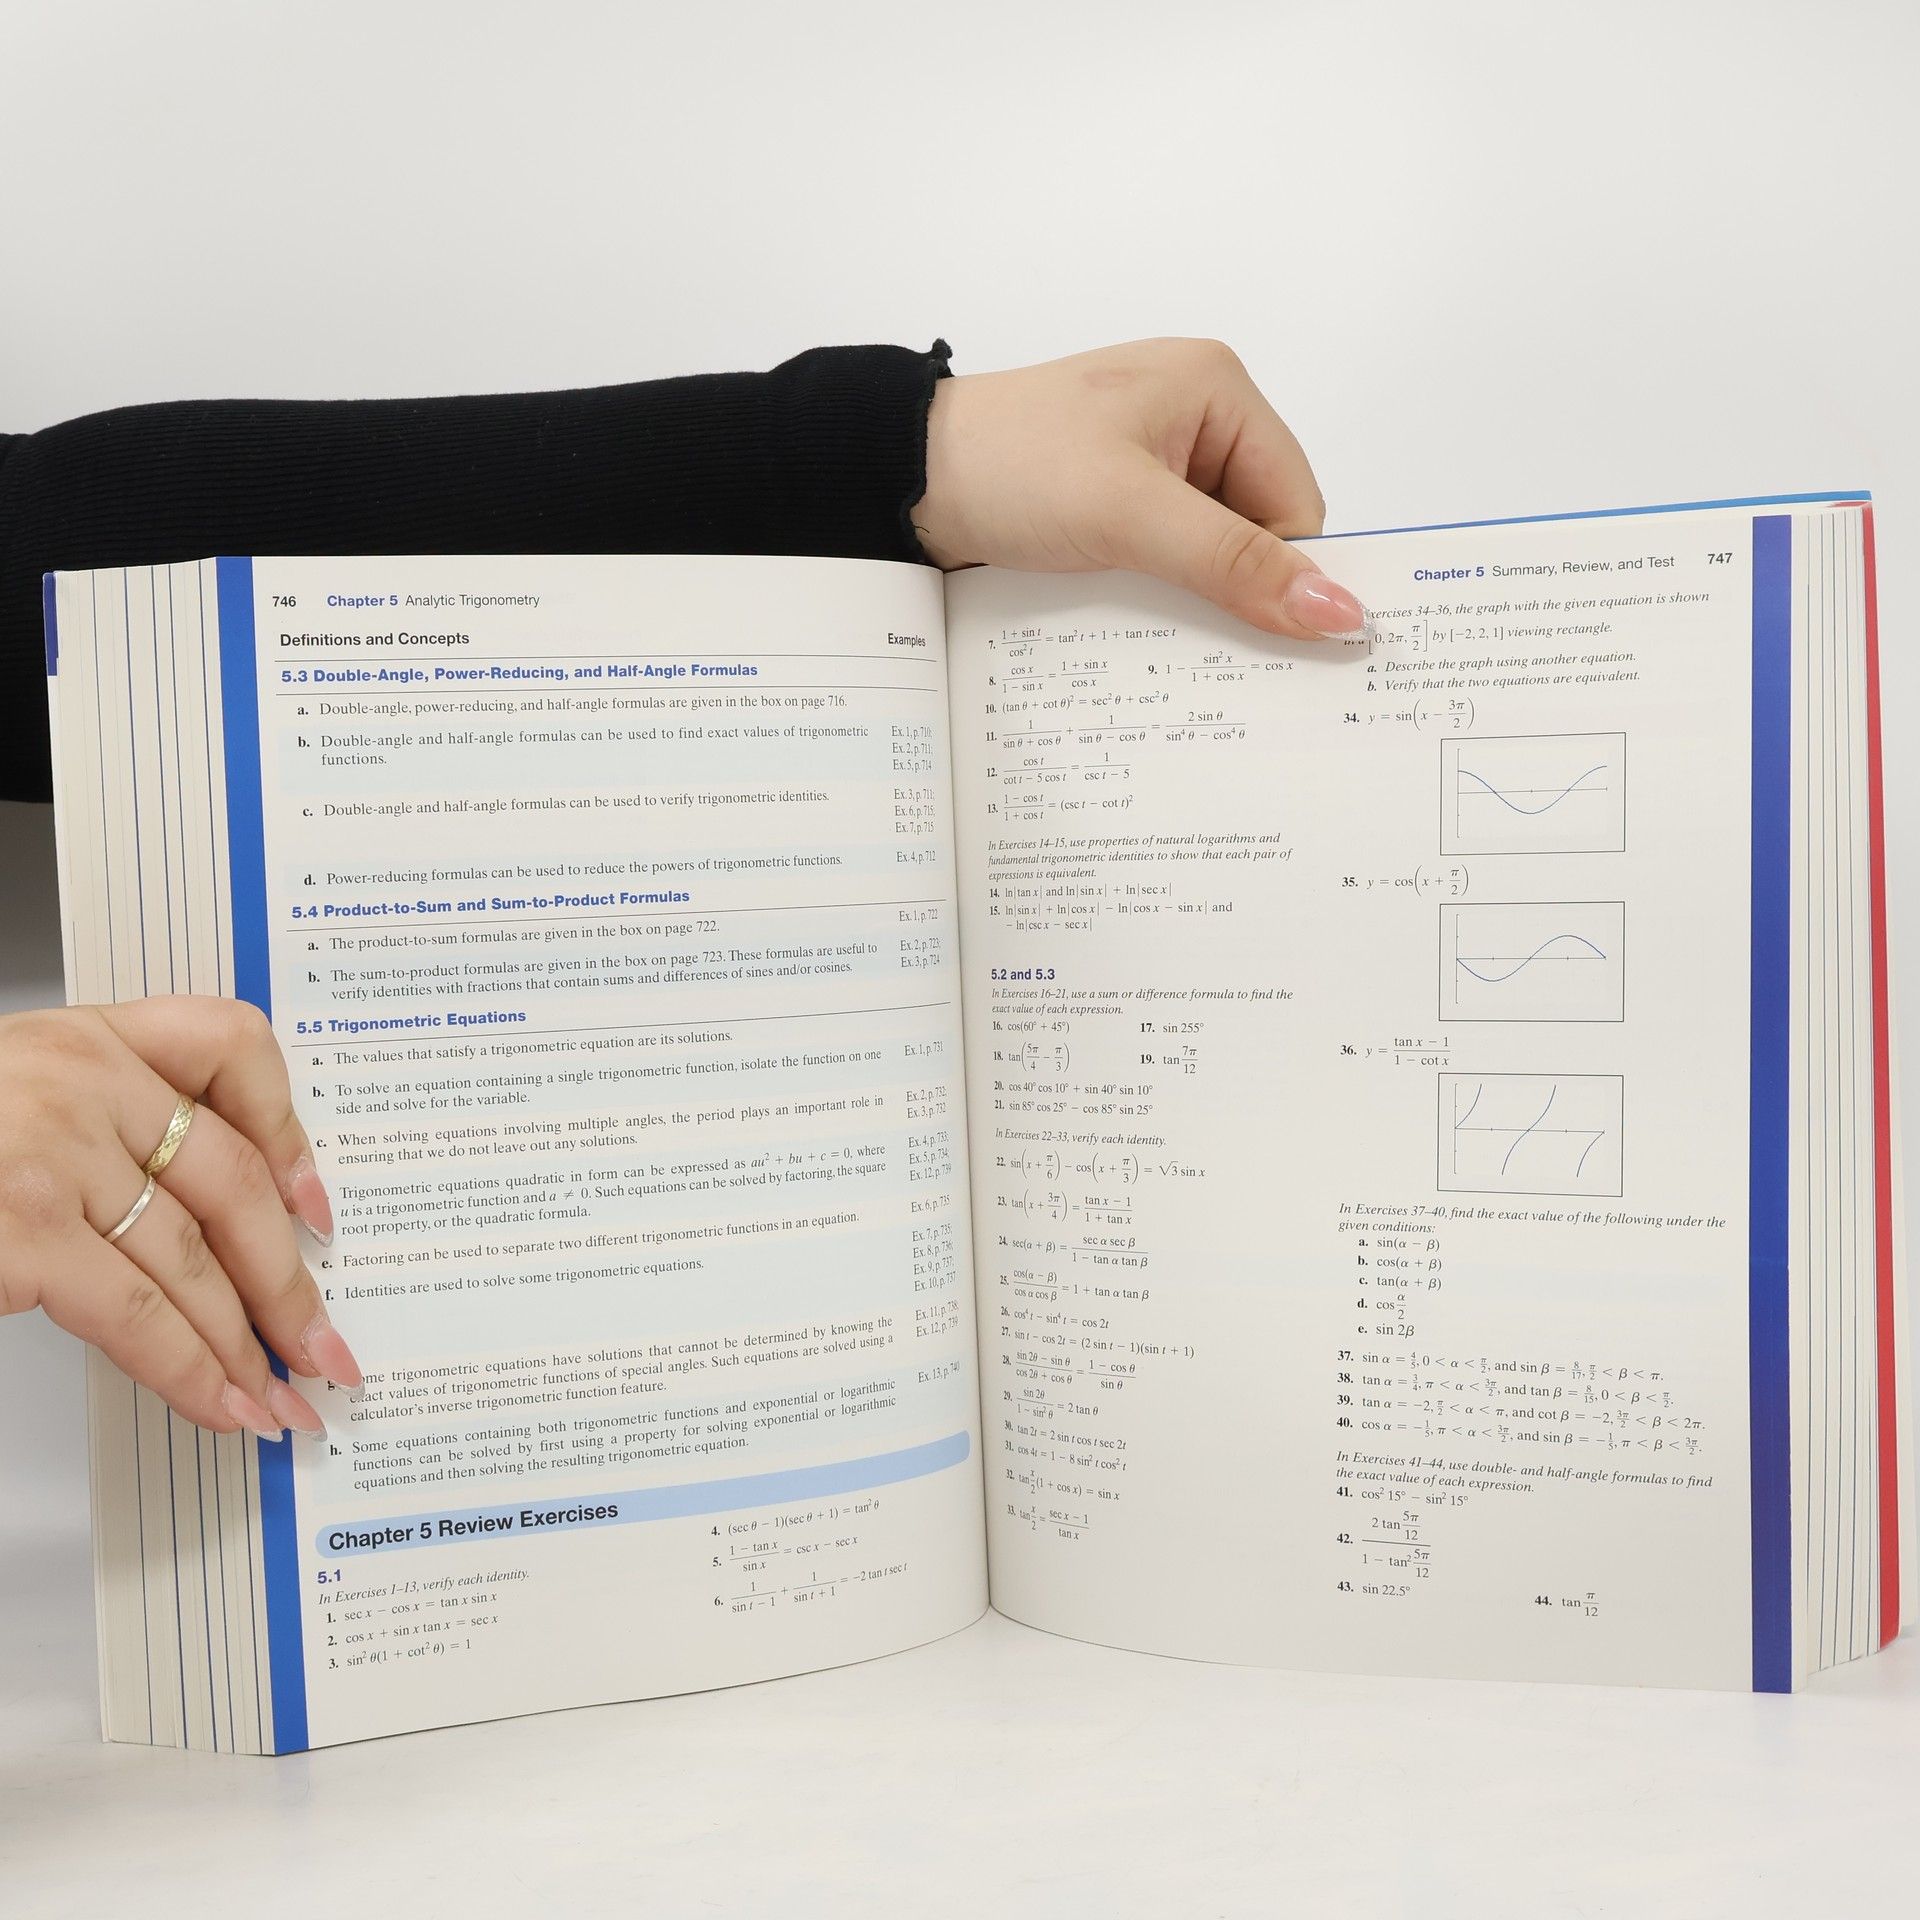 746 Chapter 5 Analytic Trigonometry
Definitions and Concepts Examples
5.3 Double-Angle, Power-Reducing, and Half-Angle Formulas
a. Double-angle, power-reducing, and half-angle formulas are given in the box on page 716.
b. Double-angle and half-angle formulas can be used to find exact values of trigonometric Ex. 1, p. 710;
functions. Ex. 2, p. 711;
Ex. 5, p. 714
c. Double-angle and half-angle formulas can be used to verify trigonometric identities. Ex. 3, p. 711;
Ex. 6, p. 715;
Ex. 7, p. 715
d. Power-reducing formulas can be used to reduce the powers of trigonometric functions. Ex. 4, p. 712
5.4 Product-to-Sum and Sum-to-Product Formulas
a. The product-to-sum formulas are given in the box on page 722. Ex. 1, p. 722
b. The sum-to-product formulas are given in the box on page 723. These formulas are useful to Ex. 2, p. 723;
verify identities with fractions that contain sums and differences of sines and/or cosines. Ex. 3, p. 724
5.5 Trigonometric Equations
a. The values that satisfy a trigonometric equation are its solutions.
b. To solve an equation containing a single trigonometric function, isolate the function on one Ex. 1, p. 731
side and solve for the variable.
c. When solving equations involving multiple angles, the period plays an important role in Ex. 2, p. 732;
ensuring that we do not leave out any solutions. Ex. 3, p. 732
Trigonometric equations quadratic in form can be expressed as au² + bu + c = 0, where Ex. 4, p. 733;
u is a trigonometric function and a ≠ 0. Such equations can be solved by factoring, the square Ex. 5, p. 734;
root property, or the quadratic formula. Ex. 12, p. 739
e. Factoring can be used to separate two different trigonometric functions in an equation. Ex. 6, p. 735
f. Identities are used to solve some trigonometric equations. Ex. 7, p. 735;
Ex. 8, p. 736;
Ex. 9, p. 737;
Ex. 10, p. 737
trigonometric equations have solutions that cannot be determined by knowing the Ex. 11, p. 738;
values of trigonometric functions of special angles. Such equations are solved using a Ex. 12, p. 739
calculator's inverse trigonometric function feature.
h. Some equations containing both trigonometric functions and exponential or logarithmic Ex. 13, p. 740
functions can be solved by first using a property for solving exponential or logarithmic
equations and then solving the resulting trigonometric equation.
Chapter 5 Review Exercises
5.1
In Exercises 1–13, verify each identity.
1. sec x − cos x = tan x sin x
2. cos x + sin x tan x = sec x
3. sin² θ(1 + cot² θ) = 1
4. (sec θ − 1)(sec θ + 1) = tan² θ
5. (1 − tan x)/(sin x) = csc x − sec x
6. 1/(sin t − 1) + 1/(sin t + 1) = −2 tan t sec t
Chapter 5 Summary, Review, and Test 747
7. (1 + sin t)/(cos² t) = tan² t + 1 + tan t sec t
8. (cos x)/(1 − sin x) = (1 + sin x)/(cos x) 9. 1 − (sin² x)/(1 + cos x) = cos x
10. (tan θ + cot θ)² = sec² θ + csc² θ
11. 1/(sin θ + cos θ) + 1/(sin θ − cos θ) = (2 sin θ)/(sin⁴ θ − cos⁴ θ)
12. (cos t)/(cot t − 5 cos t) = 1/(csc t − 5)
13. (1 − cos t)/(1 + cos t) = (csc t − cot t)²
In Exercises 14–15, use properties of natural logarithms and
fundamental trigonometric identities to show that each pair of
expressions is equivalent.
14. ln|tan x| and ln|sin x| + ln|sec x|
15. ln|sin x| + ln|cos x| − ln|cos x − sin x| and
− ln|csc x − sec x|
5.2 and 5.3
In Exercises 16–21, use a sum or difference formula to find the
exact value of each expression.
16. cos(60° + 45°) 17. sin 255°
18. tan(5π/4 − π/3) 19. tan 7π/12
20. cos 40° cos 10° + sin 40° sin 10°
21. sin 85° cos 25° − cos 85° sin 25°
In Exercises 22–33, verify each identity.
22. sin(x + π/6) − cos(x + π/3) = √3 sin x
23. tan(x + 3π/4) = (tan x − 1)/(1 + tan x)
24. sec(α + β) = (sec α sec β)/(1 − tan α tan β)
25. cos(α − β)/(cos α cos β) = 1 + tan α tan β
26. cos⁴ t − sin⁴ t = cos 2t
27. sin t − cos 2t = (2 sin t − 1)(sin t + 1)
28. (sin 2θ − sin θ)/(cos 2θ + cos θ) = (1 − cos θ)/(sin θ)
29. (sin 2θ)/(1 − sin² θ) = 2 tan θ
30. tan 2t = 2 sin t cos t sec 2t
31. cos 4t = 1 − 8 sin² t cos² t
32. tan x/2 (1 + cos x) = sin x
33. tan x/2 = (sec x − 1)/(tan x)
Exercises 34–36, the graph with the given equation is shown
[0, 2π, π/2] by [−2, 2, 1] viewing rectangle.
a. Describe the graph using another equation.
b. Verify that the two equations are equivalent.
34. y = sin(x − 3π/2)
35. y = cos(x + π/2)
36. y = (tan x − 1)/(1 − cot x)
In Exercises 37–40, find the exact value of the following under the
given conditions:
a. sin(α − β)
b. cos(α + β)
c. tan(α + β)
d. cos α/2
e. sin 2β
37. sin α = 4/5, 0 < α < π/2, and sin β = 8/17, π/2 < β < π.
38. tan α = 3/4, π < α < 3π/2, and tan β = 8/15, 0 < β < π/2.
39. tan α = −2, π/2 < α < π, and cot β = −2, 3π/2 < β < 2π.
40. cos α = −1/5, π < α < 3π/2, and sin β = −1/5, π < β < 3π/2.
In Exercises 41–44, use double- and half-angle formulas to find
the exact value of each expression.
41. cos² 15° − sin² 15°
42. (2 tan 5π/12)/(1 − tan² 5π/12)
43. sin 22.5° 44. tan π/12